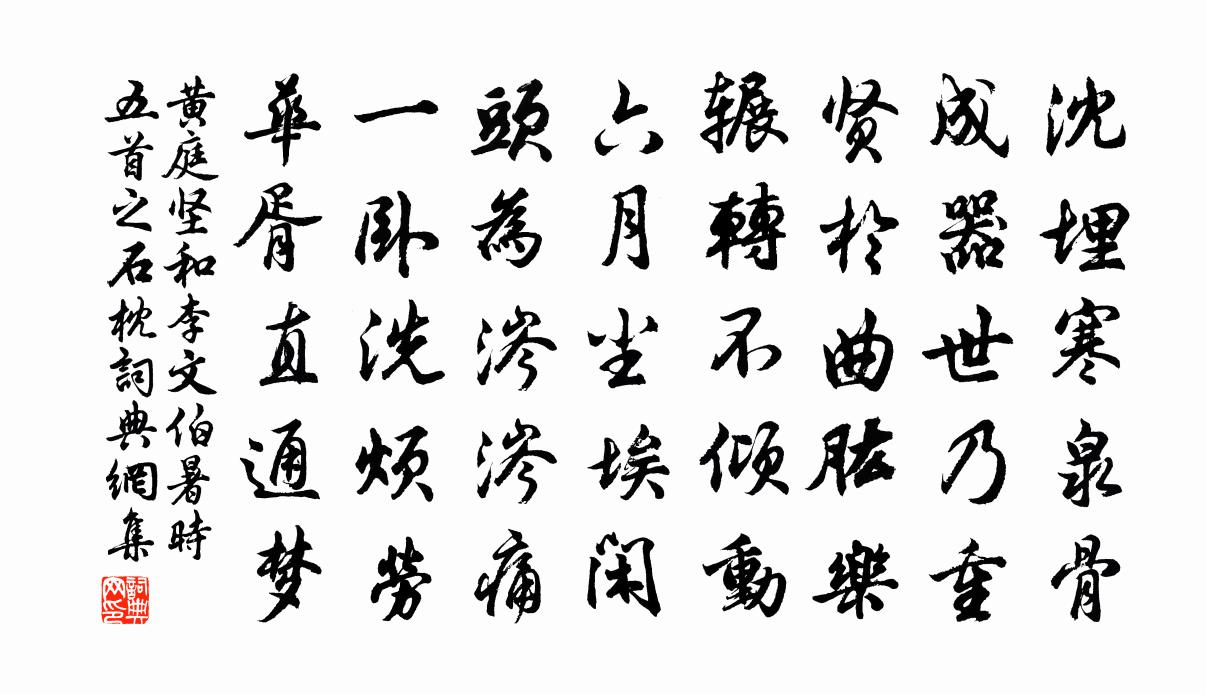 沈埋寒泉骨
成器世乃重
贤於曲肱樂
辗轉不倾動
六月尘埃闲
頭為涔涔痛
一卧洗烦劳
華胥直通梦
黄庭坚和李文伯暑時
五首之石枕詞典網集
詞典網印